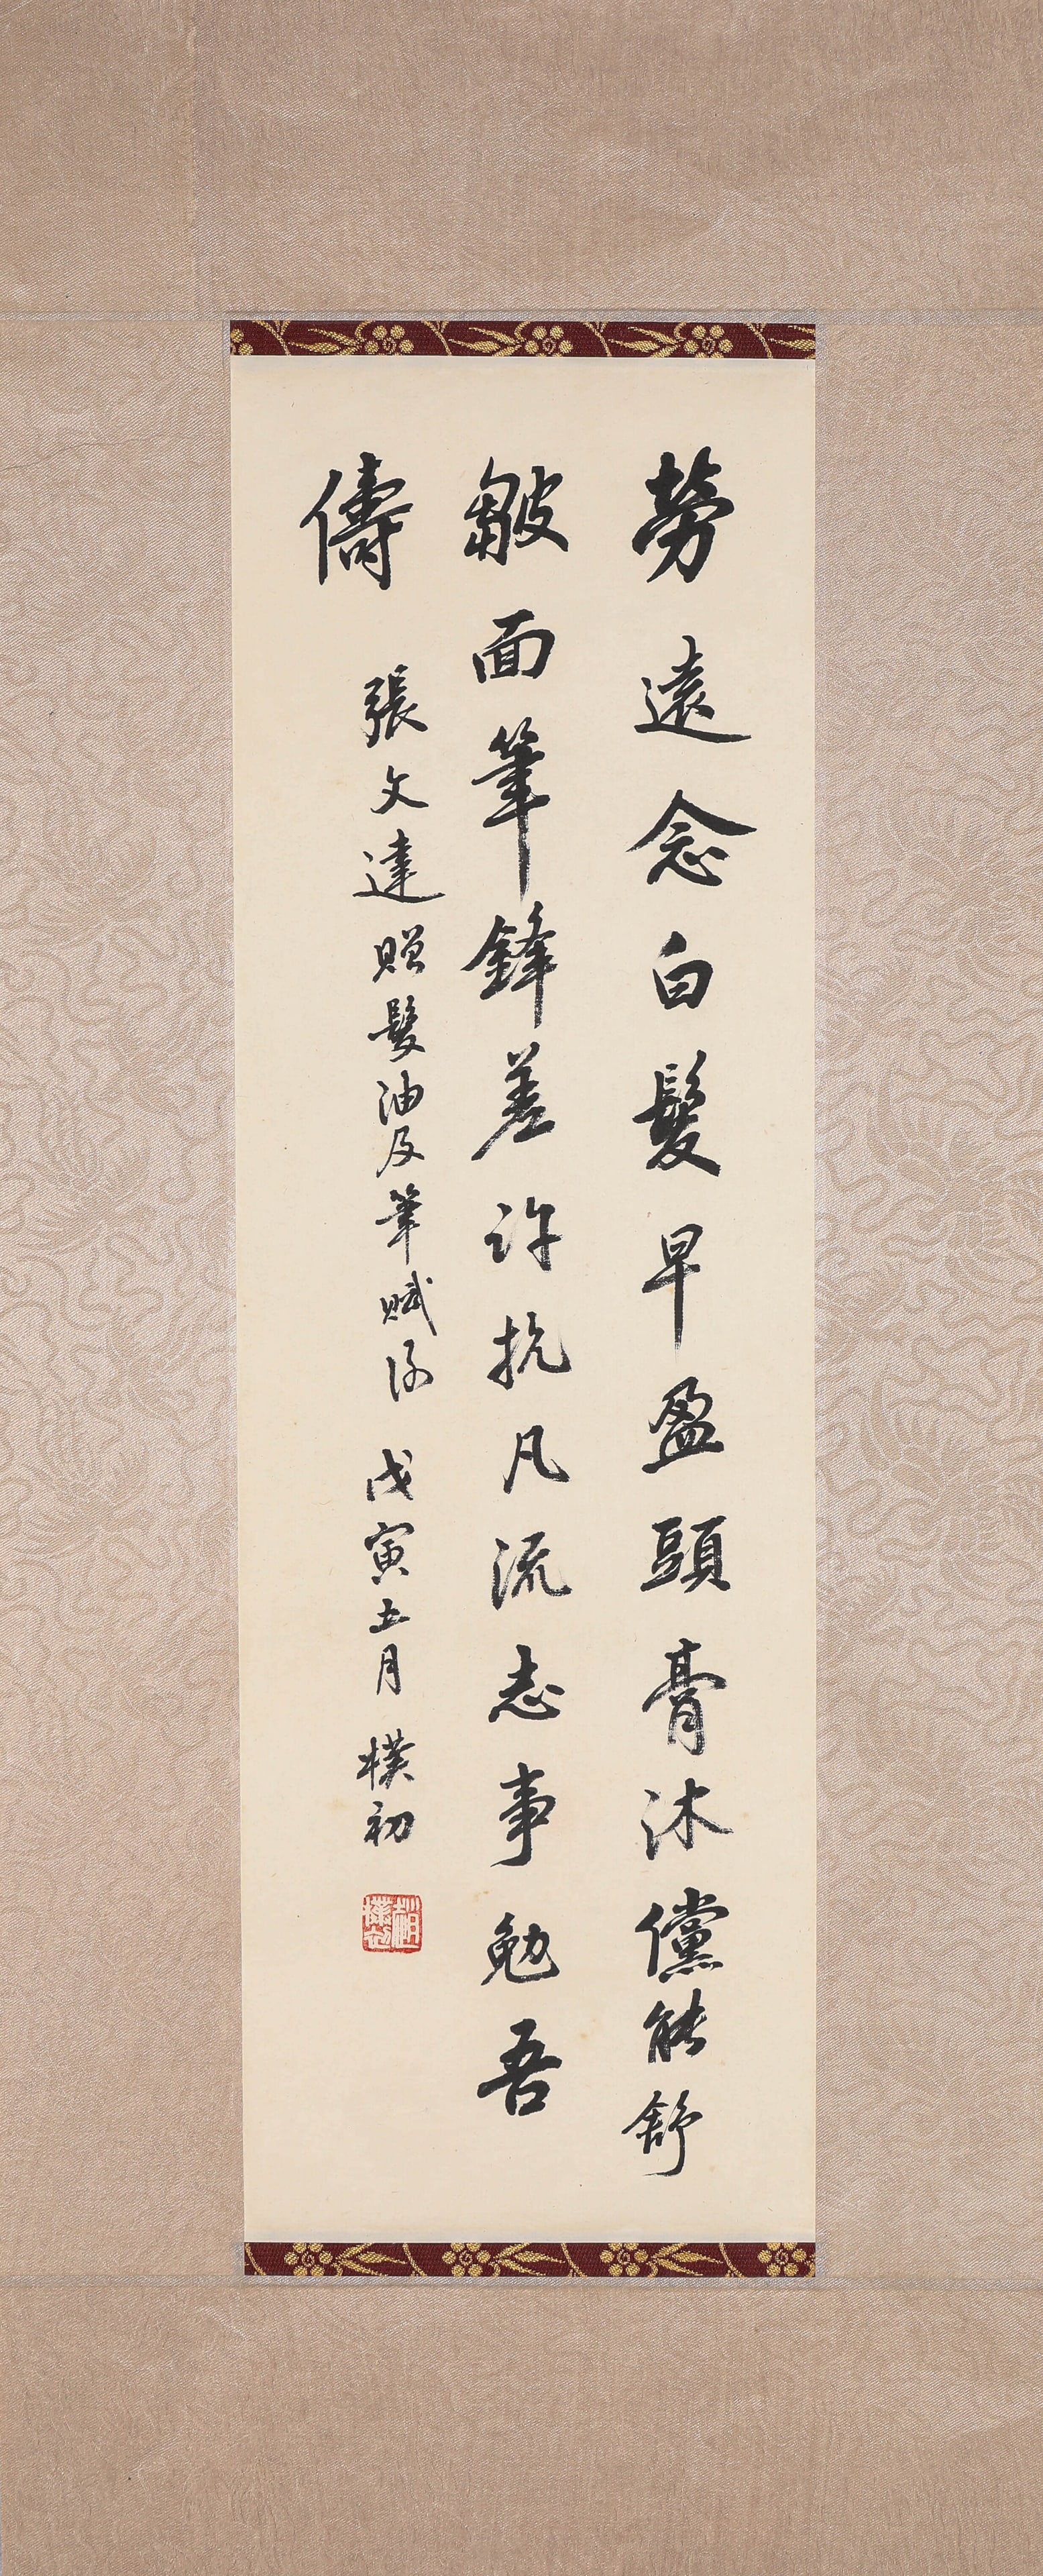 勞遠念白髮早盈頭膏沐儻能舒
皺面筆鋒差許抗凡流志事勉吾
儔
張文達贈髮油及筆賦謝 戊寅五月 樸初
趙樸初